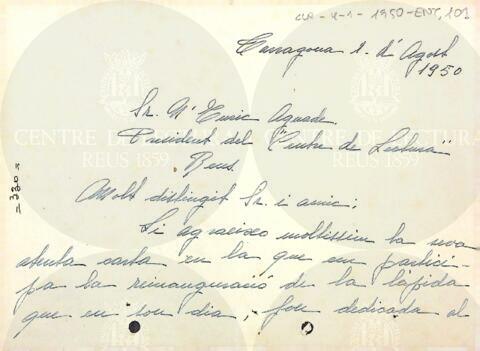 CLR-4-1-1950-ENT, 101
Tarragona 2 d'Agost
1950
Sr. N' Enric Aguade
President del "Centre de Lectura"
Reus.
CENTRE DE LECTURA
REUS 1859
CENTRE DE LECTURA
REUS 1859
= 330 =
Molt distingit Sr. i amic:
Li agraeixo moltissim la seva
atenta carta en la que em partici-
pa la reinauguració de la làpida
que en son dia, fou dedicada al